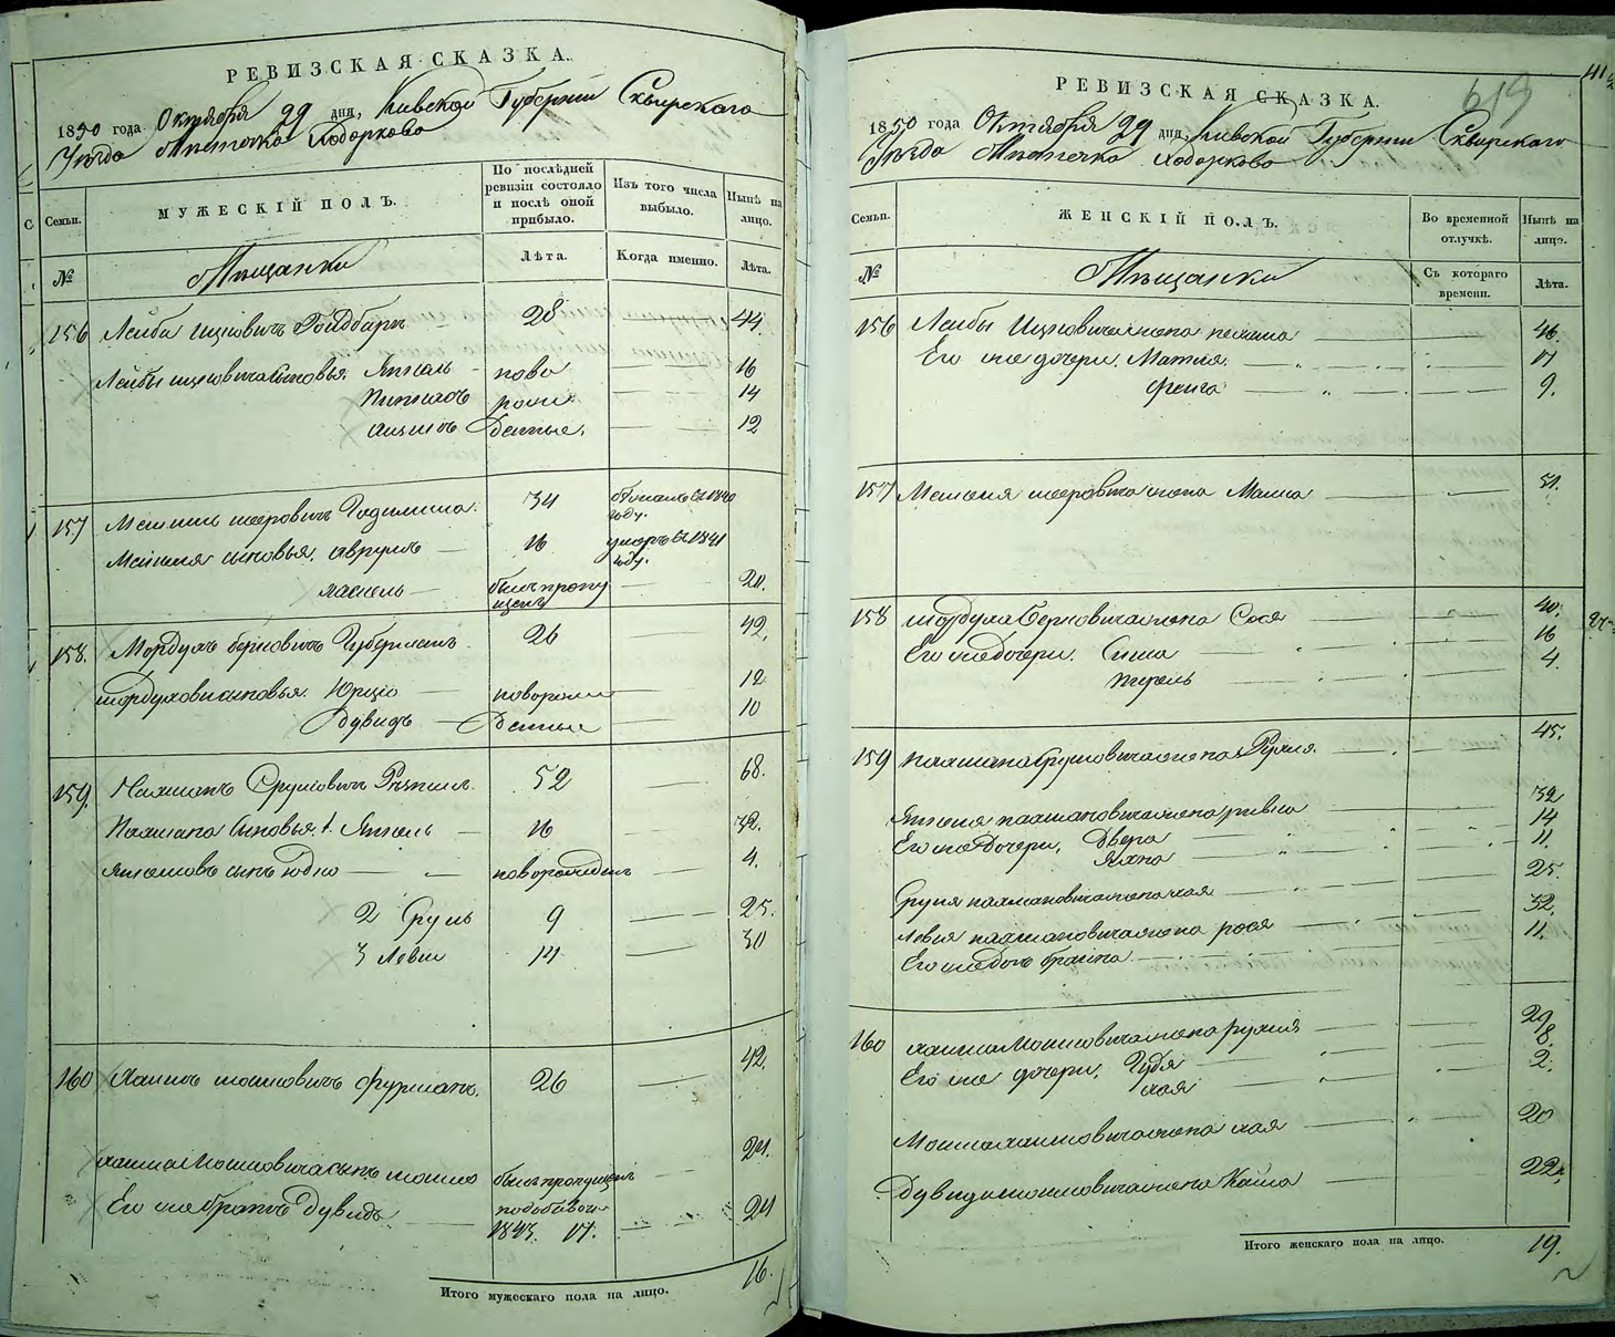 РЕВИЗСКАЯ СКАЗКА.
1850 года Октября 29 дня, Киевской Губернии Сквирского
Уезда Местечка Ходоркова
Семьи.
МУЖЕСКІЙ ПОЛЪ.
По послѣдней ревизіи состояло и послѣ оной прибыло.
Изъ того числа выбыло.
Нынѣ на лицо.
№
Мещанки
Лѣта.
Когда именно.
Лѣта.
156 Лейба Ицковичъ 28 44.
Лейбы Ицковича сыновья. Янкель ново 16
Пинхасъ рож 14
Ицыкъ денные. 12
157 34 1840 году.
сыновья. Аврумъ 16 умеръ въ 1841 году.
былъ пропущенъ 20.
158. Мордухъ Берковичъ Губерманъ 26 42.
Мордуховы сыновья. Юрцio новорож 12
Дувидъ денные 10
159. Нахманъ Сруловичъ 52 68.
Нахмана сыновья. 1. Янкель 16 32.
Янкелевъ сынъ Юдко новорожденъ 4.
2 Сруль 9 25.
3 Лейви 14 30
160 Хаимъ Мошковичъ Фурманъ. 26 42.
Хаима Мошковича сынъ Мошко былъ пропущенъ 24.
Его же братъ Дувидъ 1843. 17. 24
Итого мужескаго пола на лицо. 16.
РЕВИЗСКАЯ СКАЗКА.
619
1850 года Октября 29 дня, Киевской Губернии Сквирского
Уезда Местечка Ходоркова
Семьи.
ЖЕНСКІЙ ПОЛЪ.
Во временной отлучкѣ.
Нынѣ на лицо.
№
Мещанки
Съ котораго времени.
Лѣта.
156 Лейбы Ицковича жена 46.
Его же дочери. Матля. 17
Фейга 9.
157 жена Малка 51.
158 Мордуха Берковича жена Сося 40.
Его же дочери. 16
Перель 4.
159 Нахмана Сруловича жена Рухля. 45.
Янкеля Нахмановича жена Ривка 32
Его же дочери. Двера 14
Яхна 11.
Сруля Нахмановича жена Хая 25.
Лейвия Нахмановича жена Рося 32.
Его же дочь Браина 11.
160 Хаима Мошковича жена Рухля 29
Его же дочери. Гудя 8.
Хая 2.
Мошка Хаимовича жена Хая 20
Дувида Мошковича жена 22.
Итого женскаго пола на лицо. 19.